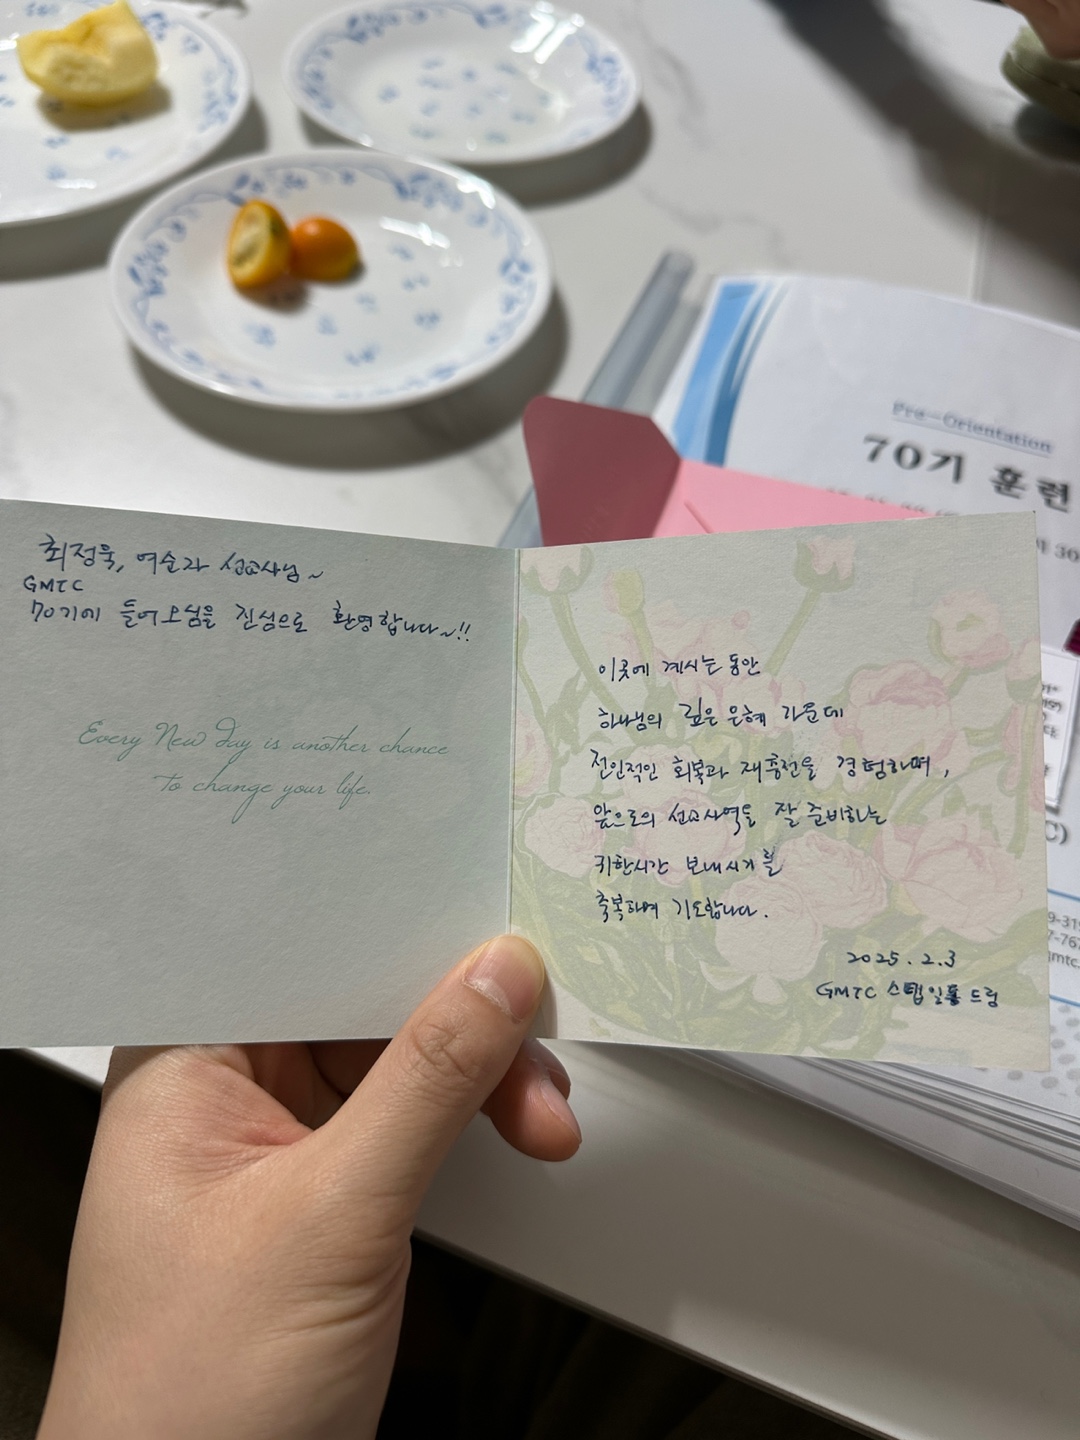 최정욱, 여순라 선교사님~
GMTC
70기에 들어오심을 진심으로 환영합니다~!!
Every New day is another chance
to change your life.
이곳에 계시는 동안
하나님의 깊은 은혜 가운데
전인적인 회복과 재충전을 경험하며,
앞으로의 선교사역을 잘 준비하는
귀한시간 보내시기를
축복하며 기도합니다.
2025. 2. 3
GMTC 스탭일동 드림
Pre-Orientation
70기 훈련